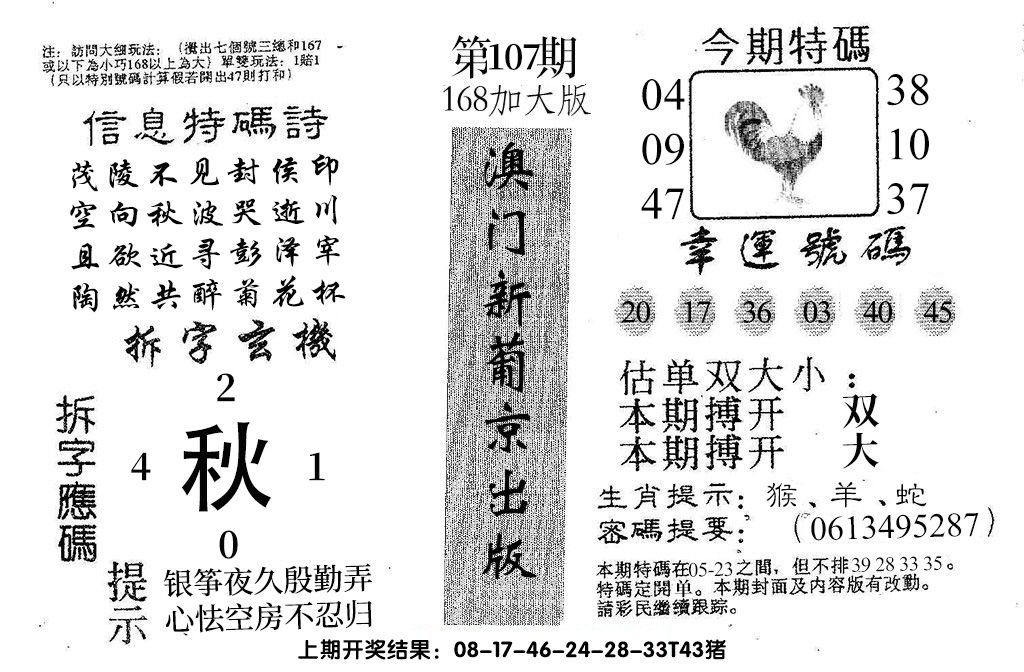 注：訪問大细玩法：（攪出七個號三總和167
或以下為小巧168以上為大）單雙玩法：1賠1
（只以特別號碼計算假若開出47則打和）
信息特碼詩
茂陵不见封侯印
空向秋波哭逝川
且欲近寻彭泽宰
陶然共醉菊花杯
拆字玄機
拆字應碼
2
4 秋 1
0
提示
银筝夜久殷勤弄
心怯空房不忍归
第107期
168加大版
澳门新葡京出版
今期特碼
04 38
09 10
47 37
幸運號碼
20 17 36 03 40 45
估单双大小：
本期搏开 双
本期搏开 大
生肖提示：猴、羊、蛇
密碼提要：（0613495287）
本期特碼在05-23之間，但不排39 28 33 35。
特碼定開单。本期封面及内容版有改動。
請彩民繼續跟踪。
上期开奖结果：08-17-46-24-28-33T43猪